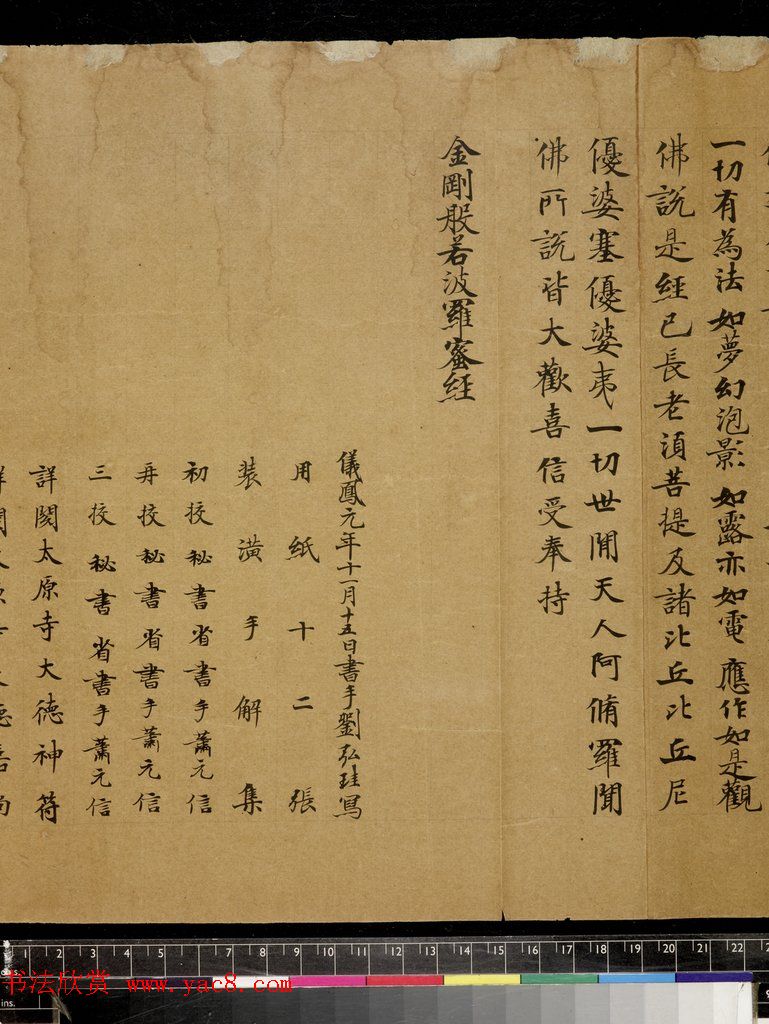 一切有為法 如夢幻泡影 如露亦如電 應作如是觀
佛說是經已長老須菩提及諸比丘比丘尼
優婆塞優婆夷一切世閒天人阿脩羅聞
佛所說皆大歡喜信受奉持
金剛般若波羅蜜經
儀鳳元年十一月十五日書手劉弘珪寫
用紙十二張
裝潢手解集
初挍秘書省書手蕭元信
再挍秘書省書手蕭元信
三挍秘書省書手蕭元信
詳閱太原寺大德神苻
1 2 3 4 5 7 8 9 10 11 12 13 14 15 16 17 18 19 20 21 22
书法欣赏 www.yac8.com
ins.